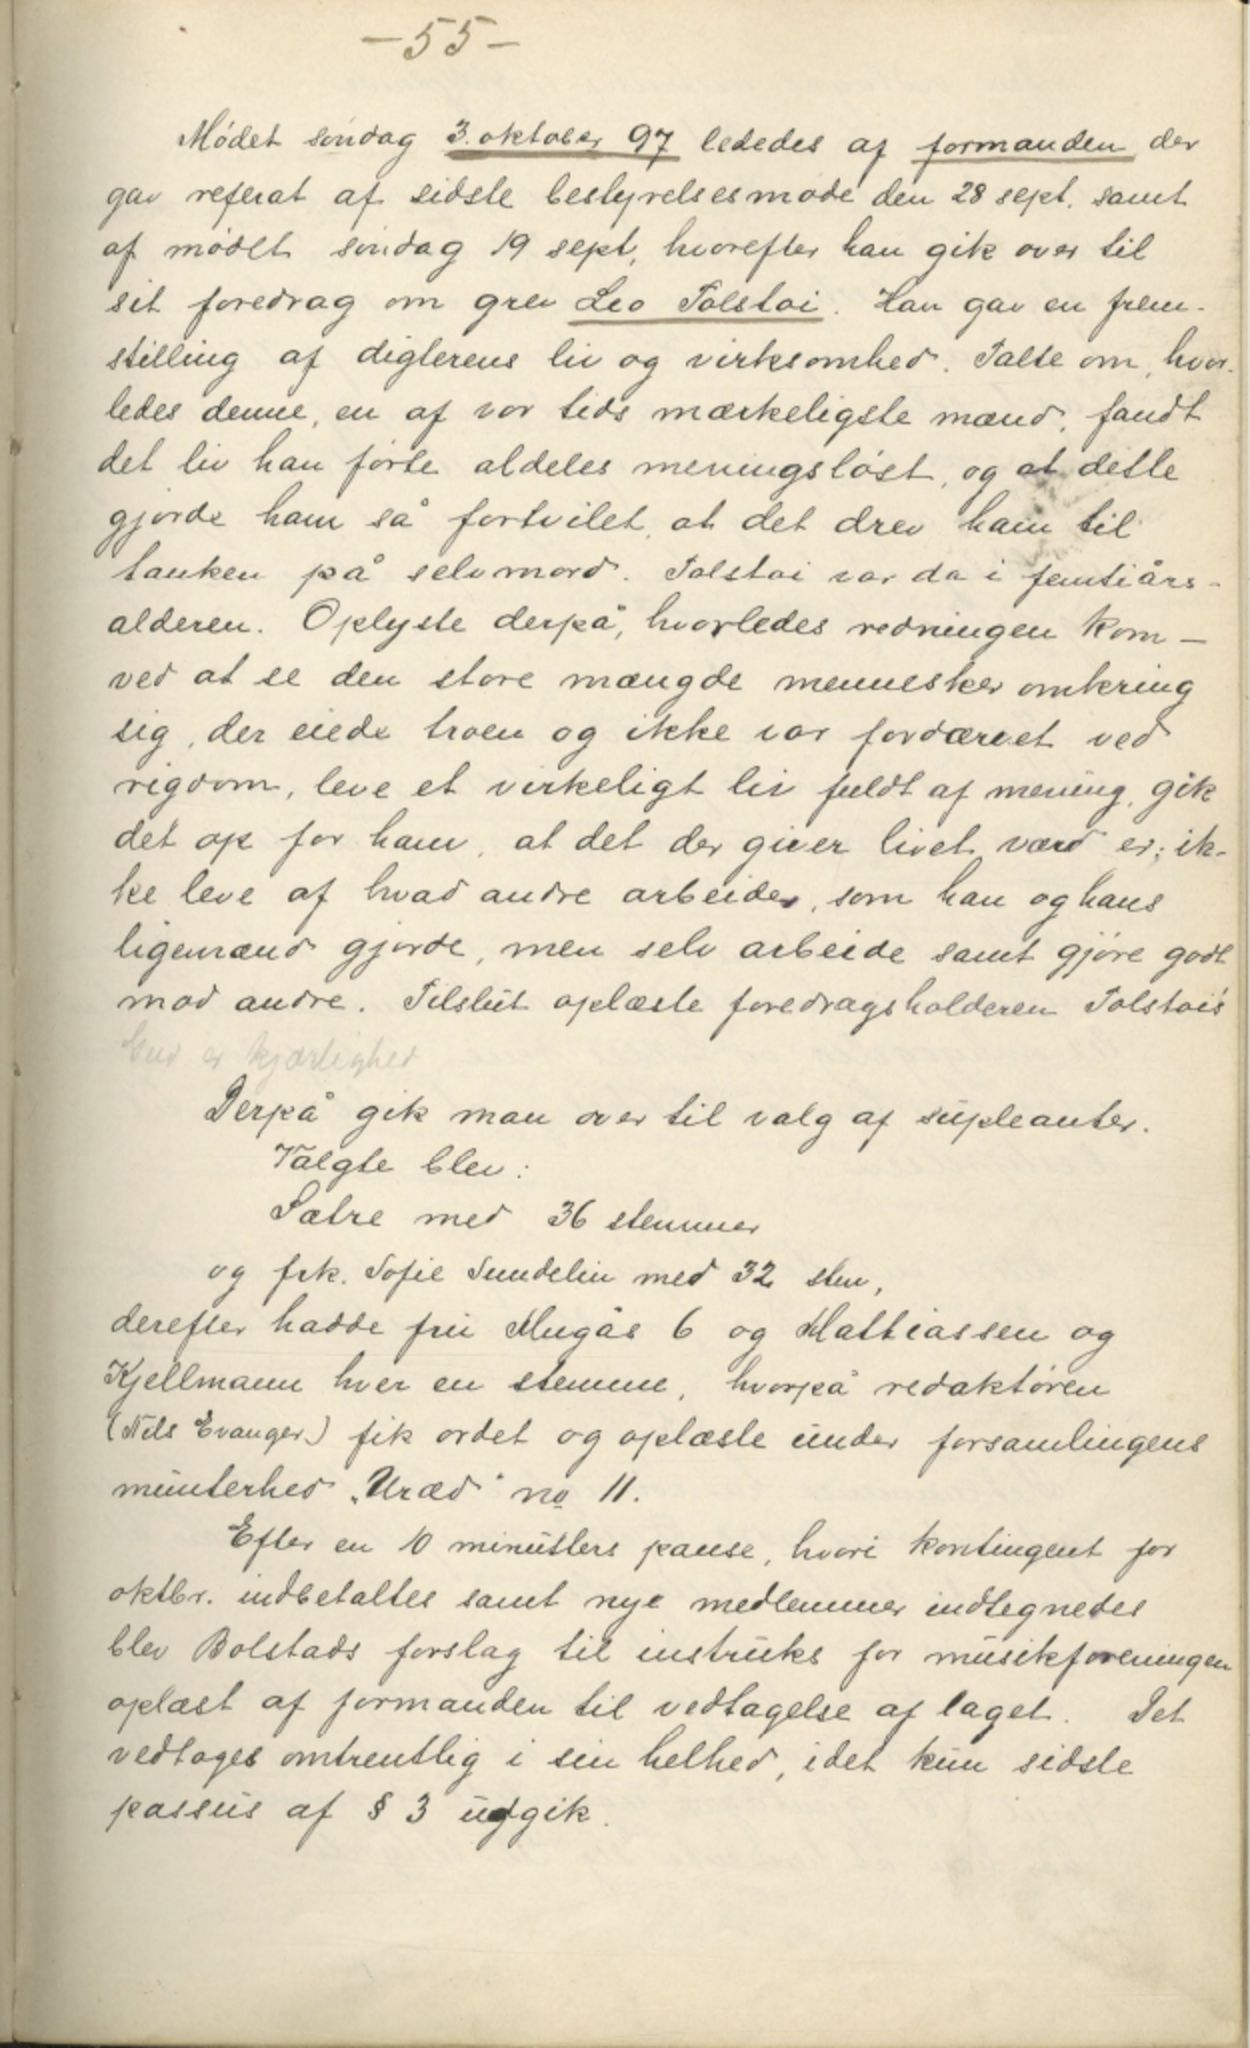 -55-
Mødet søndag 3. oktober 97 lededes af formanden der
gav referat af sidste bestyrelsesmøde den 28 sept. samt
af mødet søndag 19 sept, hvorefter han gik over til
sit foredrag om grev Leo Tolstoi. Han gav en frem-
stilling af digterens liv og virksomhed. Talte om, hvor-
ledes denne, en af vor tids mærkeligste mænd, fandt
det liv han førte aldeles meningsløst, og at dette
gjorde ham så fortvilet, at det drev ham til
tanken på selvmord. Tolstoi var da i femtiårs-
alderen. Oplyste derpå, hvorledes redningen kom —
ved at se den store mængde mennesker omkring
sig, der eiede troen og ikke var fordærvet ved
rigdom, leve et virkeligt liv fuldt af mening, gik
det op for ham, at det der giver livet værd er; ik-
ke leve af hvad andre arbeider, som han og hans
ligemænd gjorde, men selv arbeide samt gjøre godt
mod andre. Tilslut oplæste foredragsholderen Tolstois
Gud er kjærlighed
Derpå gik man over til valg af supleanter.
Valgte blev:
Sætre med 36 stemmer
og frk. Sofie Sundelin med 32 stm,
derefter hadde fru Mugås 6 og Mattiassen og
Kjellmann hver en stemme, hvorpå redaktøren
(Nils Evanger) fik ordet og oplæste under forsamlingens
munterhed "Uræd" no 11.
Efter en 10 minutters pause, hvori kontingent for
oktbr. indbetaltes samt nye medlemmer indtegnedes
blev Bolstads forslag til instruks for musikforeningen
oplæst af formanden til vedtagelse af laget. Det
vedtoges omtrentlig i sin helhed, idet kun sidste
passus af § 3 udgik.